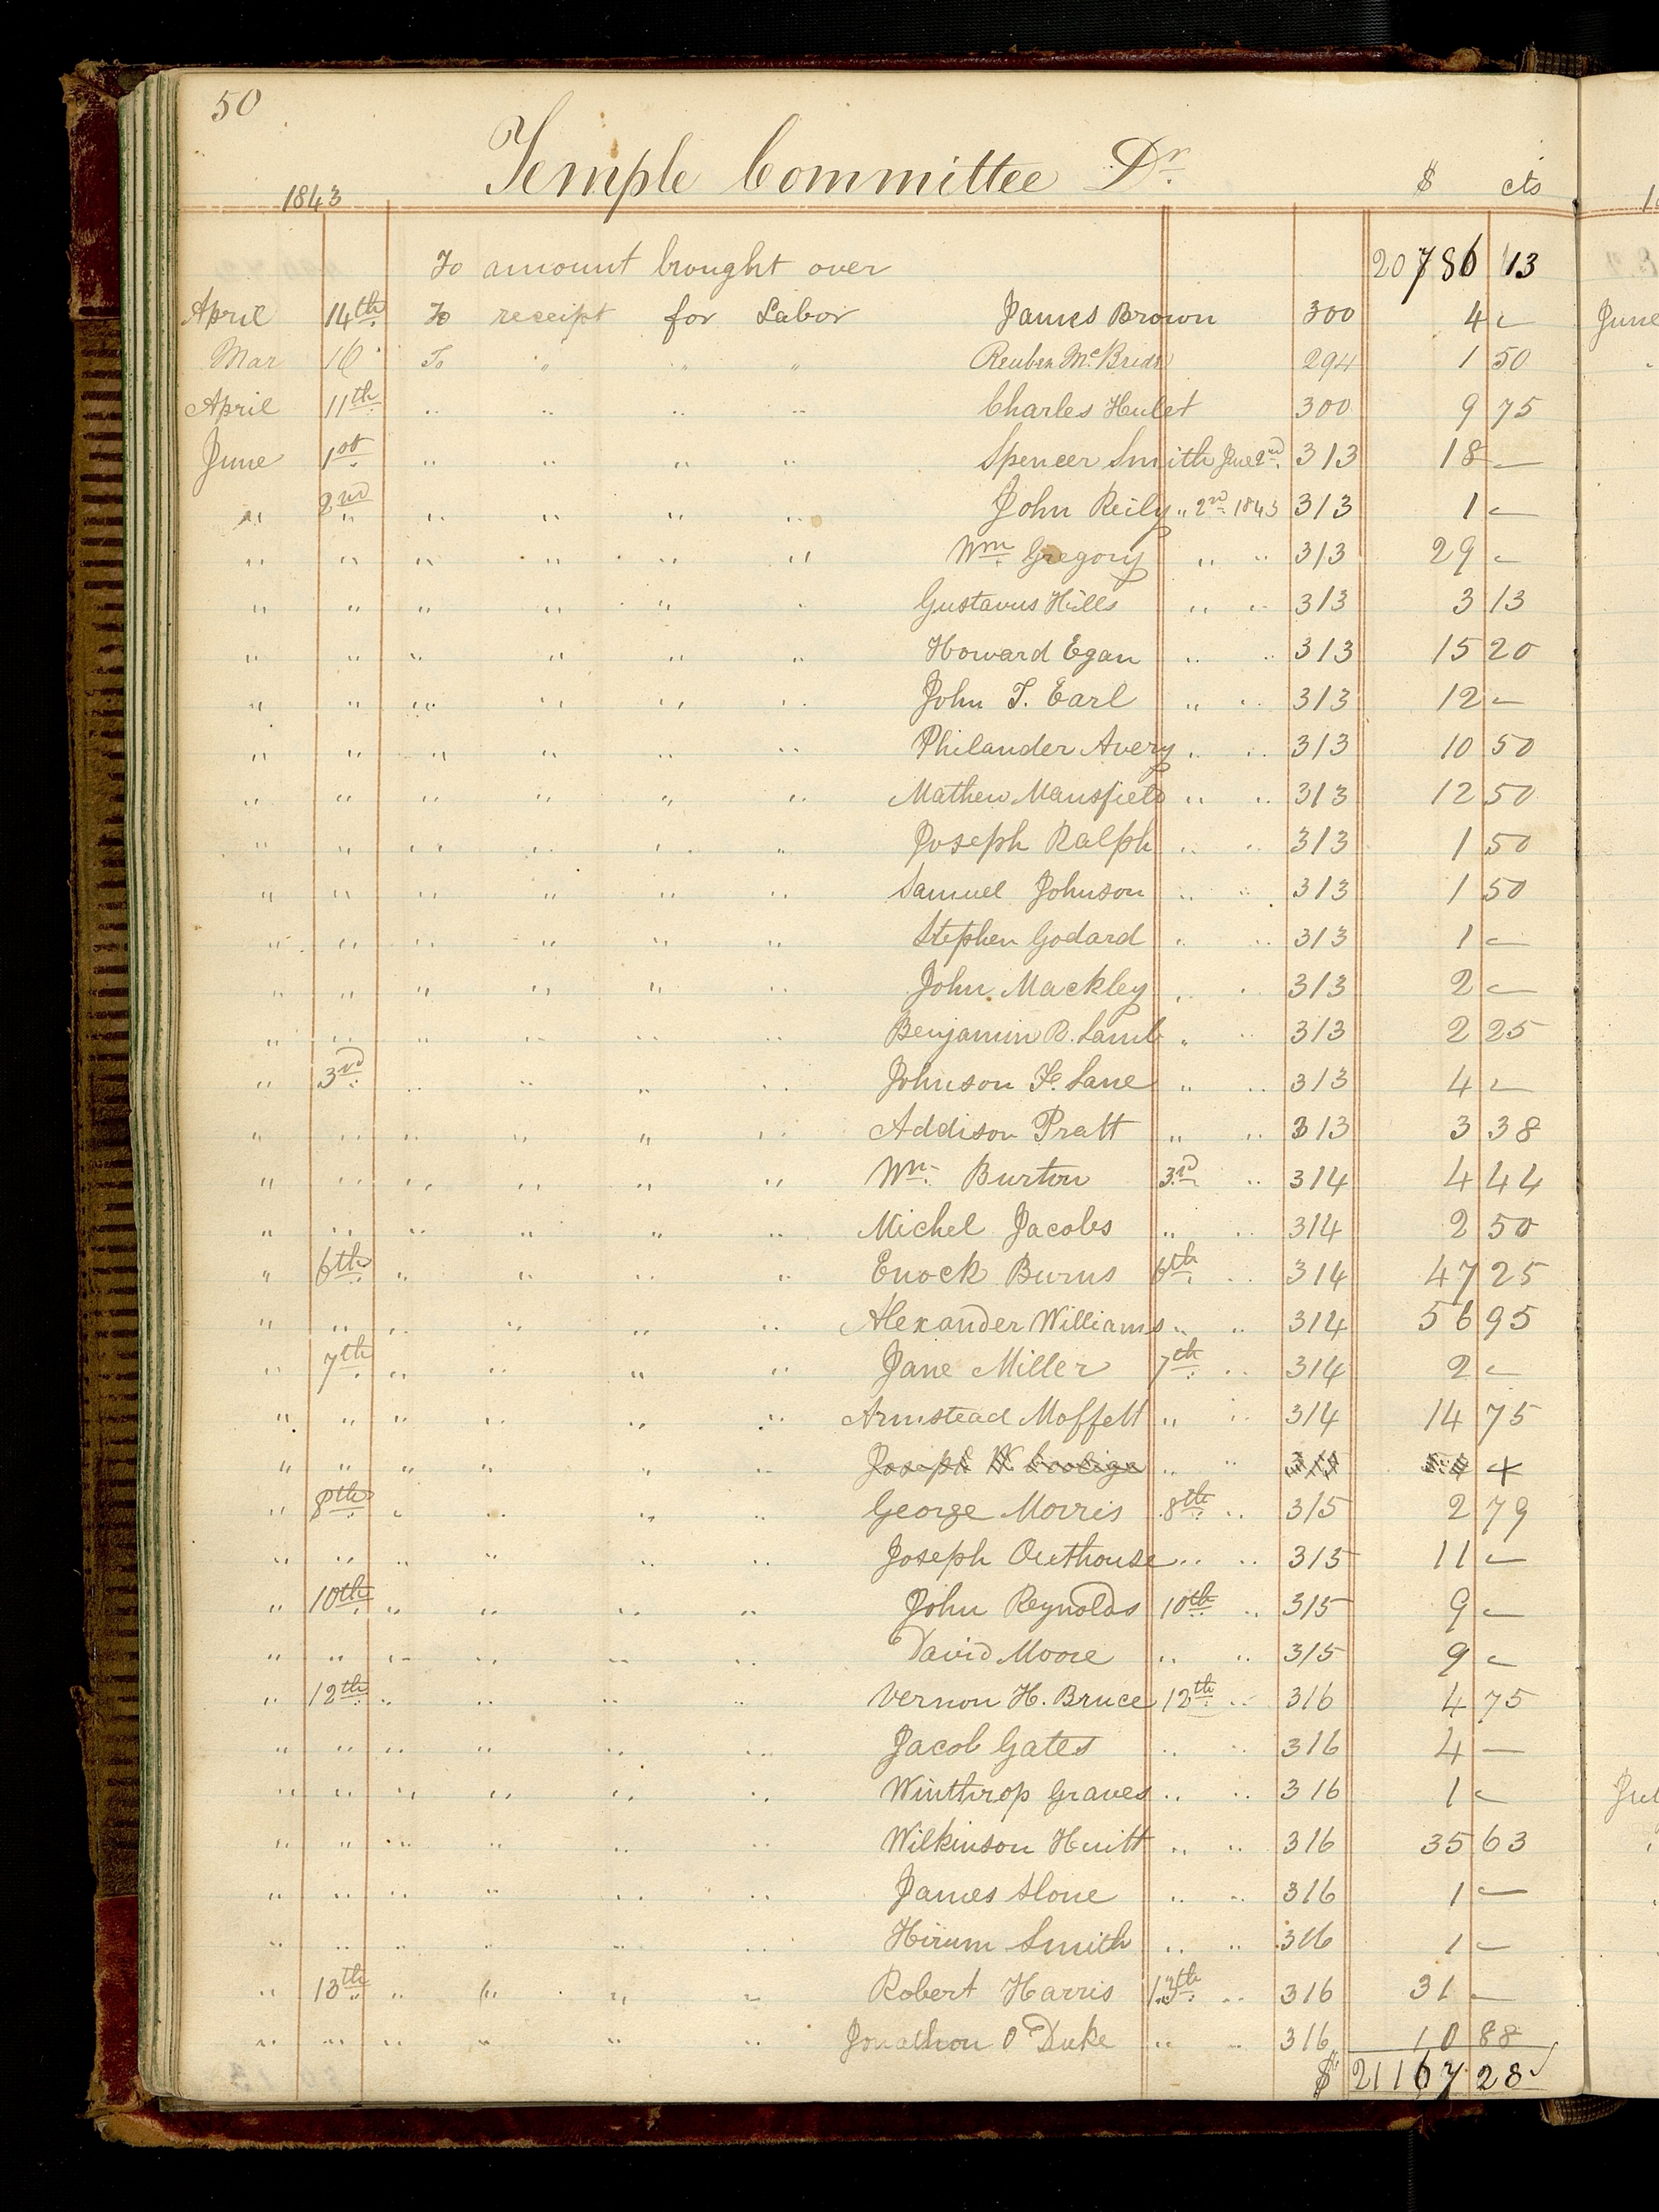 50
Temple Committee Dr.
1843 $ cts
To amount brought over 20786 13
April 14th To receipt for Labor James Brown 300 4 —
Mar 16 To " " " Reuben McBride 294 1 50
April 11th " " " " Charles Hulet 300 9 75
June 1st " " " " Spencer Smith June 2nd 313 18 —
" 2nd " " " " " John Reily " 2nd 1843 313 1 —
" " " " " " Wm Gregory " " 313 29 —
" " " " " " Gustavus Hills " " 313 3 13
" " " " " " Howard Egan " " 313 15 20
" " " " " " John T. Earl " " 313 12 —
" " " " " " Philander Avery " " 313 10 50
" " " " " " Mathew Mansfield " " 313 12 50
" " " " " " Joseph Ralph " " 313 1 50
" " " " " " Samuel Johnson " " 313 1 50
" " " " " " Stephen Godard " " 313 1 —
" " " " " " John Mackley " " 313 2 —
" " " " " " Benjamin B. Lamb " " 313 2 25
" 3rd " " " " Johnson F. Lane " " 313 4 —
" " " " " " Addison Pratt " " 313 3 38
" " " " " " Wm. Burton 3rd " 314 4 44
" " " " " " Michel Jacobs " " 314 2 50
" 6th " " " " Enock Burns 6th " 314 47 25
" " " " " " Alexander Williams " " 314 56 95
" 7th " " " " Jane Miller 7th " 314 2 —
" " " " " " Armstead Moffett " " 314 14 75
" " " " " " Joseph W Coolige " "
" 8th " " " " George Morris 8th " 315 2 79
" " " " " " Joseph Outhouse " " 315 11 —
" 10th " " " " John Reynolds 10th " 315 9 —
" " " " " " David Moore " " 315 9 —
" 12th " " " " Vernon H. Bruce 12th " 316 4 75
" " " " " " Jacob Gates " " 316 4 —
" " " " " " Winthrop Graves " " 316 1 —
" " " " " " Wilkinson Huitt " " 316 35 63
" " " " " " James Slone " " 316 1 —
" " " " " " Hirum Smith " " 316 1 —
" 13th " " " " Robert Harris 13th " 316 31 —
" " " " " " Jonathon O Duke " " 316 10 88
$ 21167 28
June